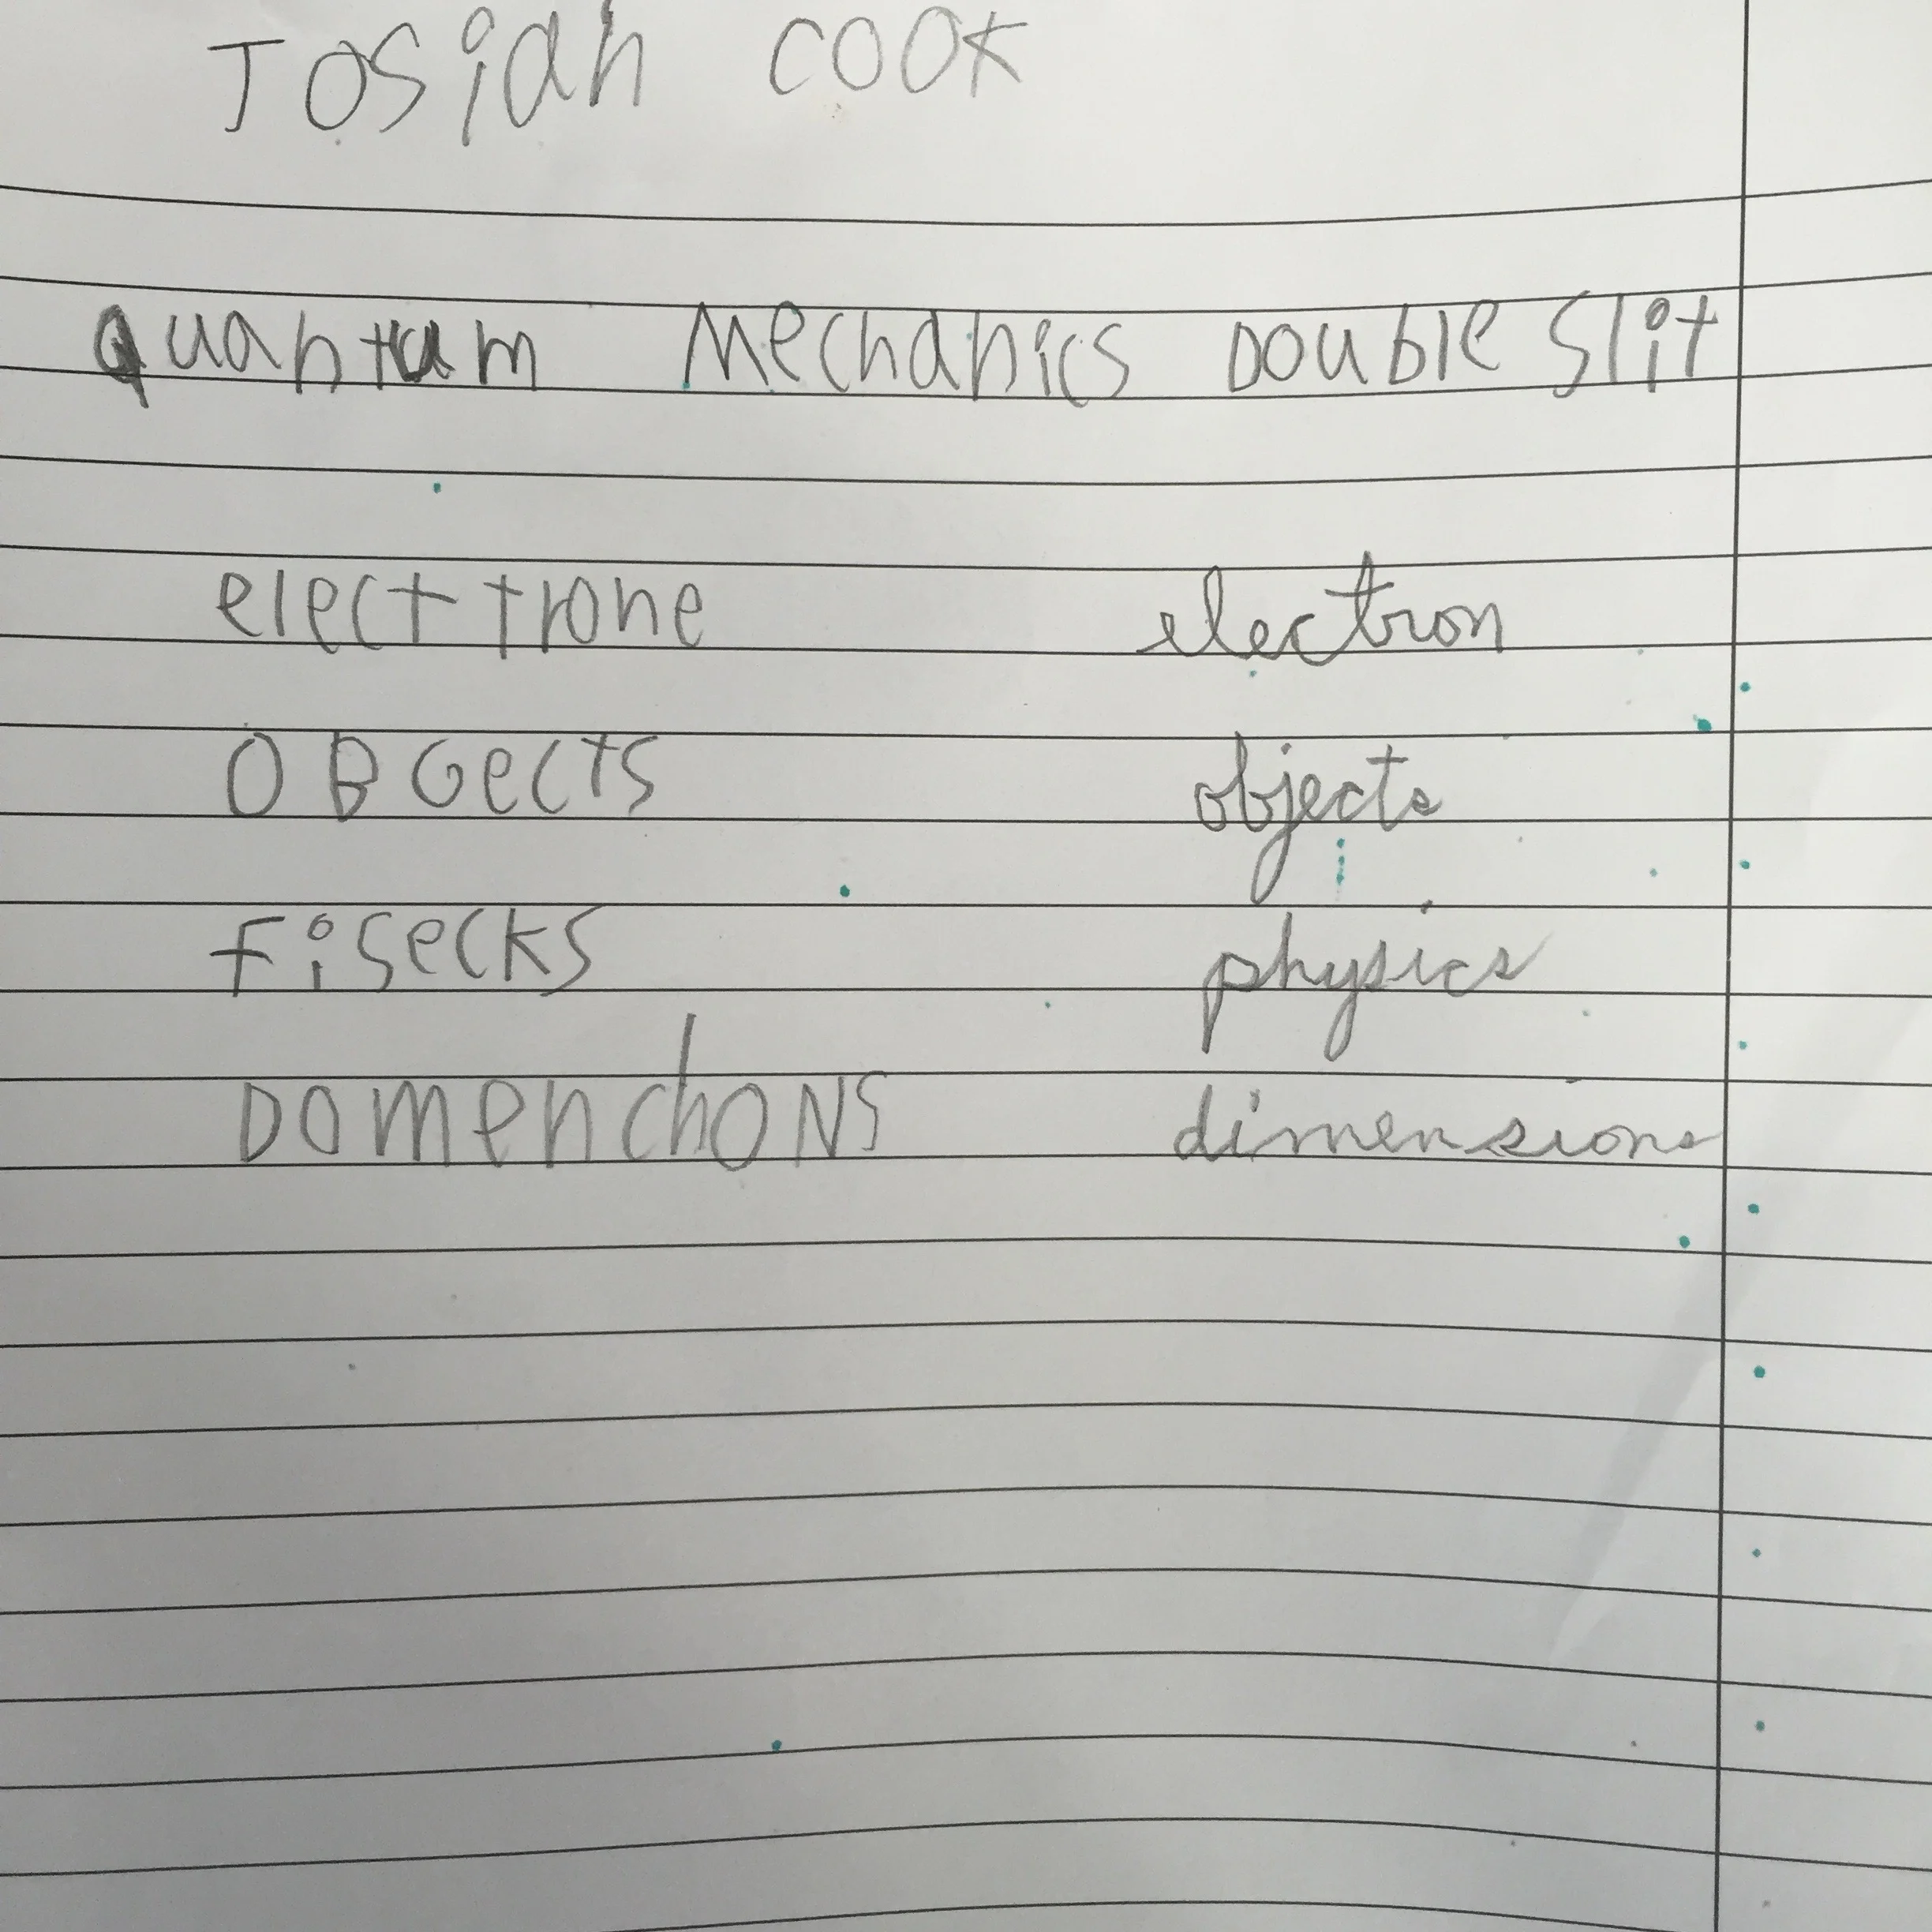 Josiah cook
Quantum Mechanics Double slit
electtrone electron
OBGects objects
Fisecks physics
DomenchoNs dimensions